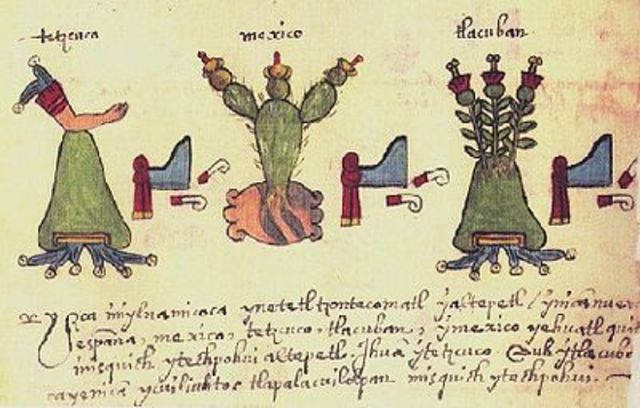 tetzcuco mexico tlacuban
ynetetl tzontecomatl yaltepetl
españa, mexico, tetzcuco, tlacuban, ymexico yehuatl qui
misquich ytechpohui altepetl. Yhuā ytetzcuco. Auh ytlacubā
cayenicā ycuiliuhtoc tlapalacuilolpan misquich ytechpohui.